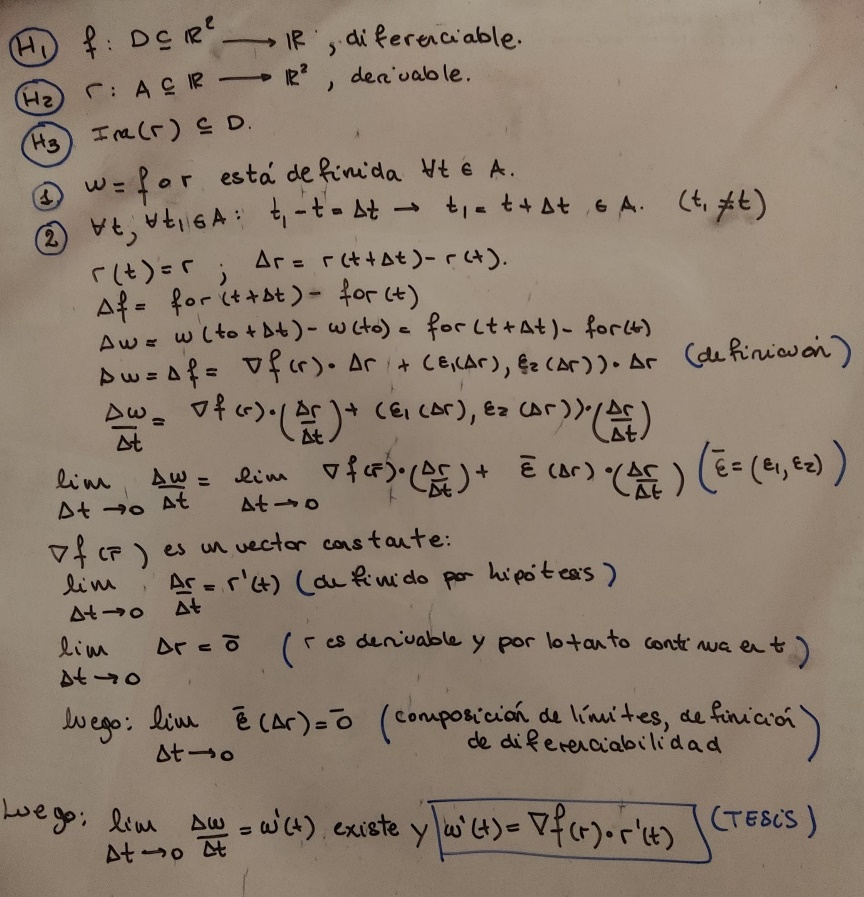 H1 f: D ⊆ ℝ² → ℝ, diferenciable.
H2 r: A ⊆ ℝ → ℝ², derivable.
H3 Ima(r) ⊆ D.
1 w = f o r está definida ∀t ∈ A.
2 ∀t, ∀t₁ ∈ A: t₁ - t = Δt → t₁ = t + Δt ∈ A. (t₁ ≠ t)
r(t) = r ; Δr = r(t+Δt) - r(t).
Δf = for(t+Δt) - for(t)
Δw = w(to+Δt) - w(to) = for(t+Δt) - for(t)
Δw = Δf = ∇f(r)·Δr + (ε₁(Δr), ε₂(Δr))·Δr (definición)
Δw/Δt = ∇f(r)·(Δr/Δt) + (ε₁(Δr), ε₂(Δr))·(Δr/Δt)
lim Δt→0 Δw/Δt = lim Δt→0 ∇f(r̄)·(Δr/Δt) + ε̄(Δr)·(Δr/Δt) (ε̄ = (ε₁, ε₂))
∇f(r̄) es un vector constante:
lim Δt→0 Δr/Δt = r'(t) (definido por hipótesis)
lim Δt→0 Δr = ō (r es derivable y por lo tanto continua en t)
luego: lim Δt→0 ε̄(Δr) = ō (composición de límites, definición
de diferenciabilidad)
Luego: lim Δt→0 Δw/Δt = w'(t) existe y w'(t) = ∇f(r)·r'(t) (TESIS)